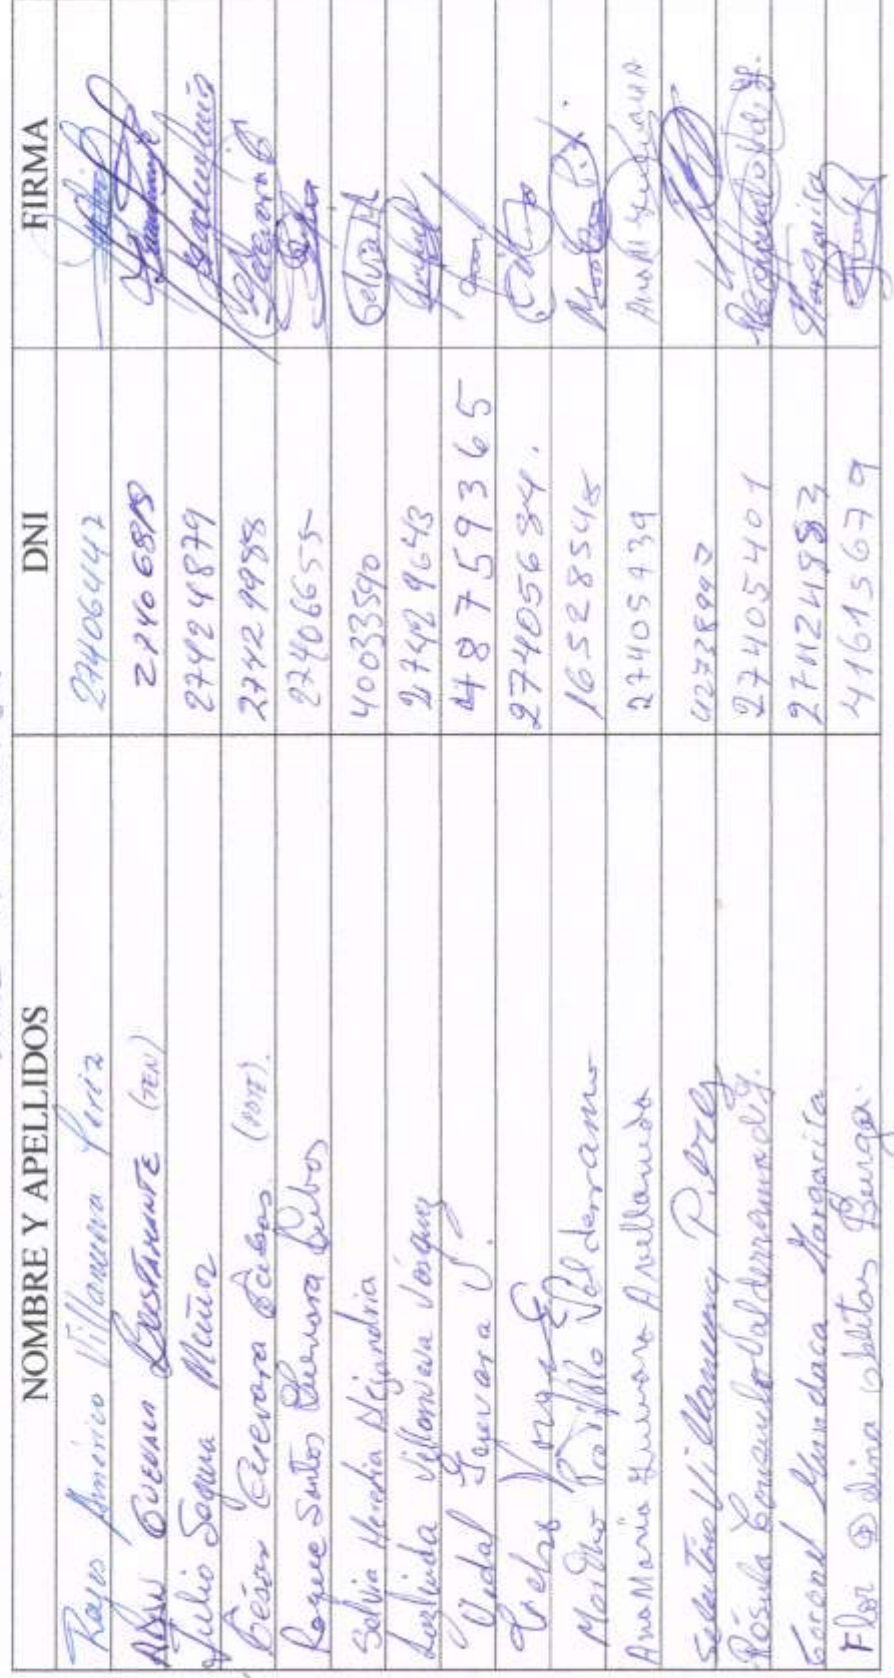 NOMBRE Y APELLIDOS DNI FIRMA
Reyes Américo Villanueva Periz 27406447
Guevara BUSTAMANTE (TEN) 27406819
Julio Segura Muñoz 27424879
César Guevara Cubas (PDTE). 27429988
Roque Santos Guevara Cubas 27406655
Selvia Heredia Alejandria 40033590 Selvia H
Luzlinda Villanueva Vásquez 27429643
Vidal Guevara V. 48759365
Celso Vasquez 27405684.
Martha Portillo Valderramo 16528548
Ana María Guevara Avellaneda 27405939 Ana M Guevara A
Villanueva Perez 42738993
Rósula Consuelo Valderrama dg. 27405401
Coronel Mundaca Margarita 27424983 Margarita
Flor Dina Oblitas Burga. 41615679